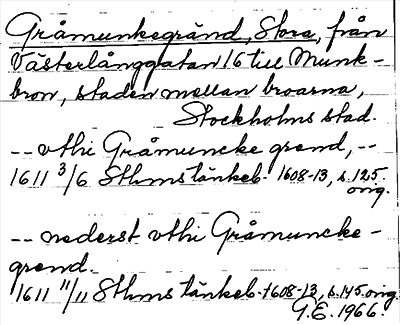 Gråmunkegränd, Stora, från
Västerlånggatan 16 till Munk-
bron, staden mellan broarna,
Stockholms stad.
-- vthi Gråmuncke grend, --
1611 3/6 Sthms tänkeb. 1608-13, s. 125.
orig.
-- nederst vthi Gråmuncke-
grend.
1611 11/11 Sthms tänkeb. 1608-13, s. 145. orig
G.E. 1966.